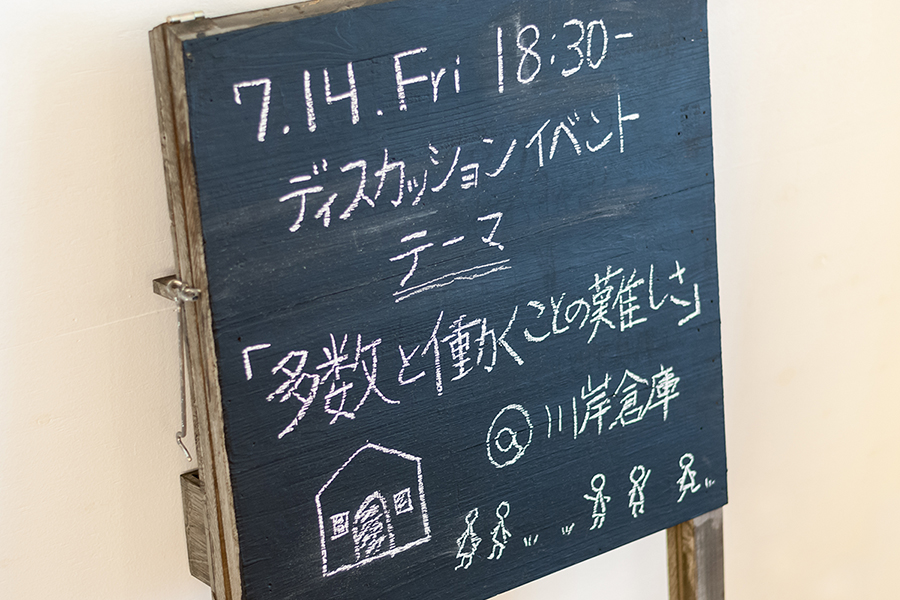 7.14.Fri 18:30-
ディスカッションイベント
テーマ
「多数と働くことの難しさ」
@川岸倉庫